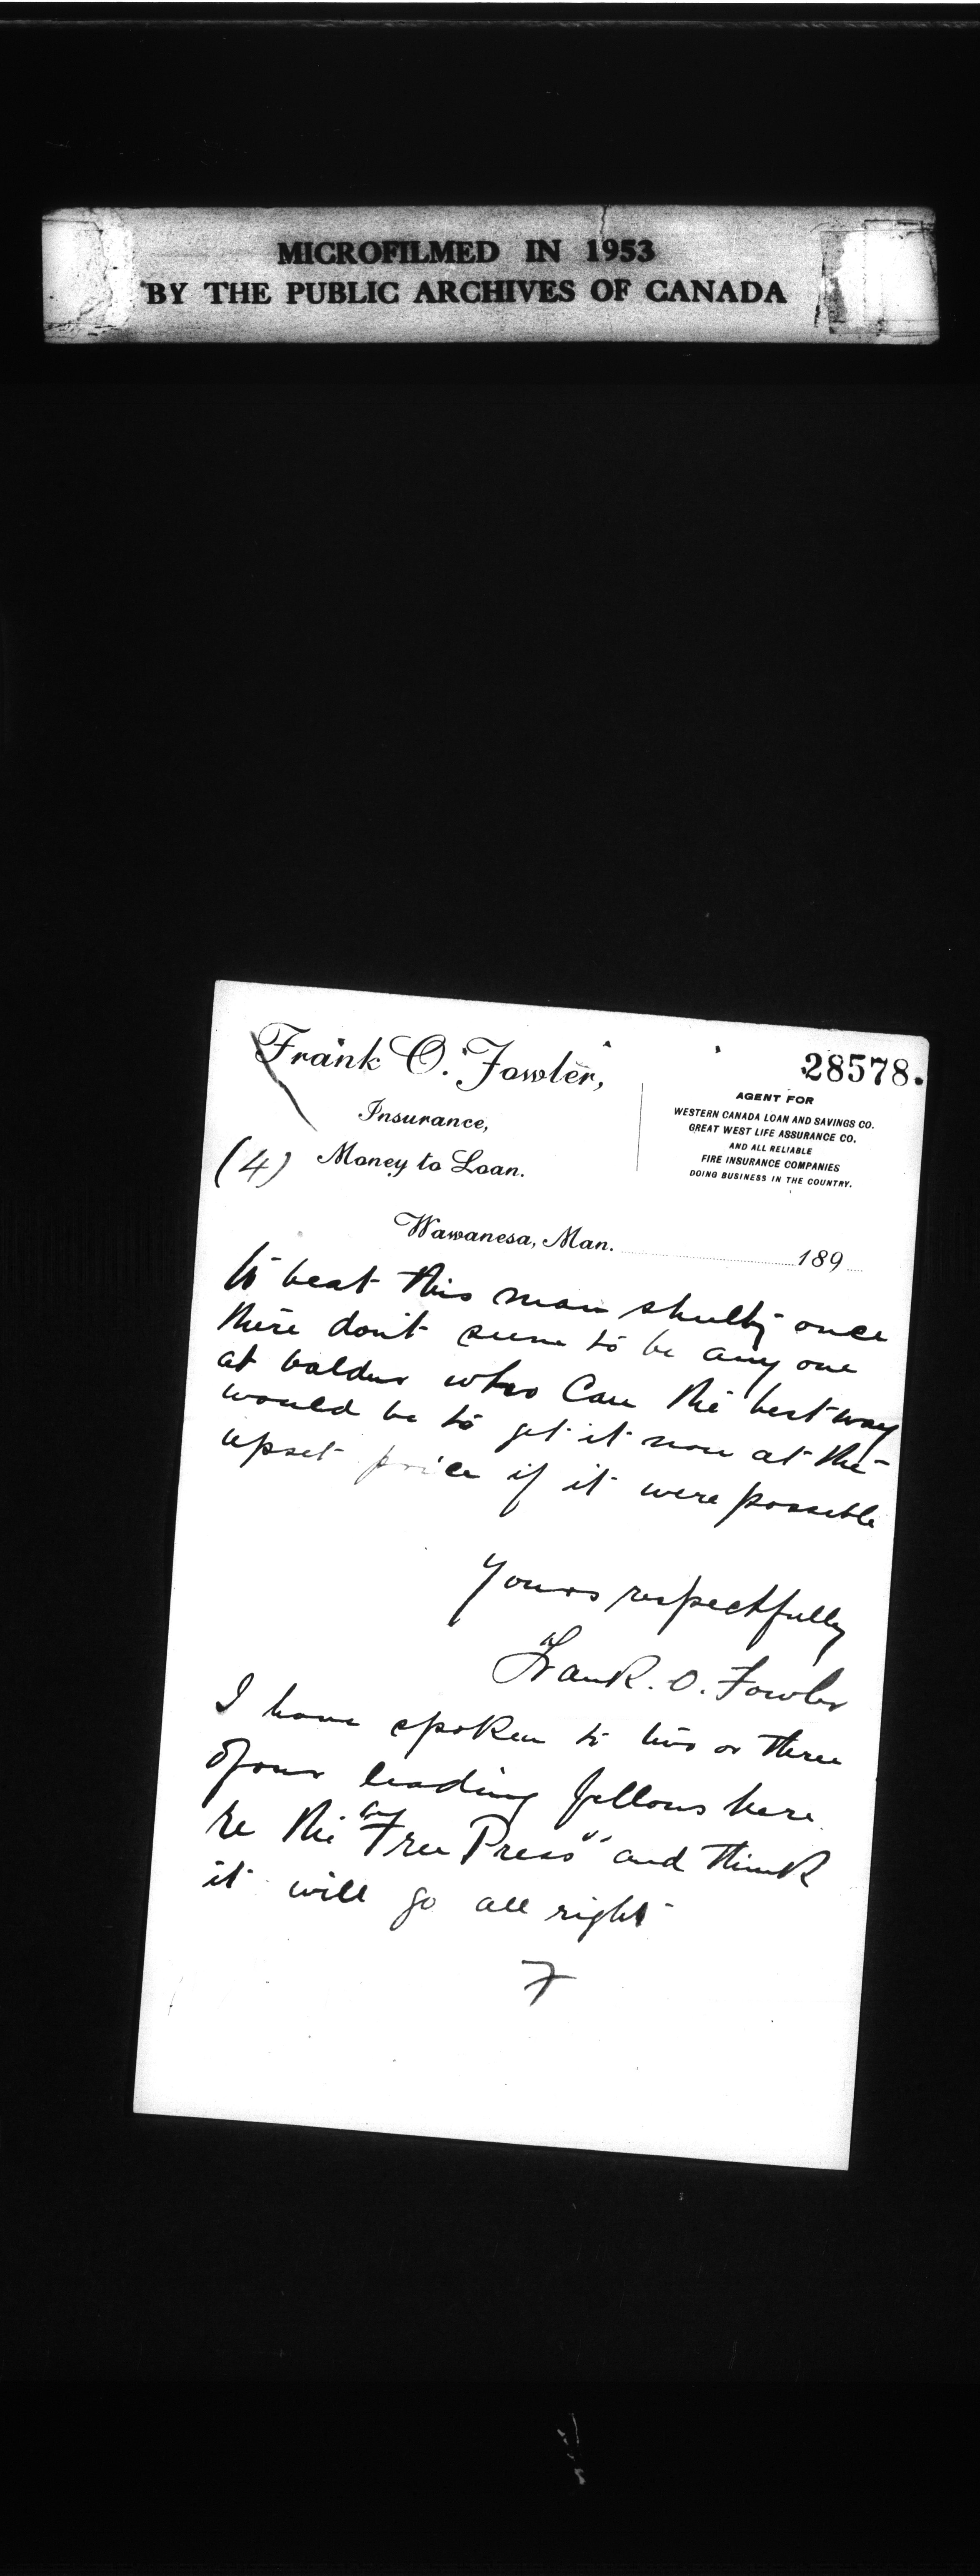 MICROFILMED IN 1953
BY THE PUBLIC ARCHIVES OF CANADA
28578.
Frank O. Fowler,
Insurance,
(4) Money to Loan.
AGENT FOR
WESTERN CANADA LOAN AND SAVINGS CO.
GREAT WEST LIFE ASSURANCE CO.
AND ALL RELIABLE
FIRE INSURANCE COMPANIES
DOING BUSINESS IN THE COUNTRY.
Wawanesa, Man. 189
to beat this man once
there don't seem to be any one
at baldur who Can the best way
would be to get it now at the
upset price if it were possible
Yours respectfully
Frank. O. Fowler
I have spoken to two or three
of our leading fellows here
re the "Free Press" and think
it will go all right
F